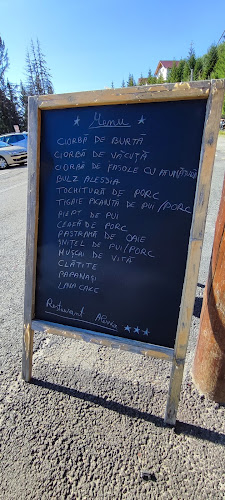 Meniu
CIORBĂ DE BURTĂ
CIORBĂ DE VĂCUȚĂ
CIORBĂ DE FASOLE CU AFUMĂTURĂ
BULZ ALESSIA
TOCHITURĂ DE PORC
TIGAIE PICANTĂ DE PUI/PORC
PIEPT DE PUI
CEAFĂ DE PORC
PASTRAMĂ DE OAIE
ȘNIȚEL DE PUI/PORC
MUȘCHI DE VITĂ
CLĂTITE
PAPANAȘI
LAVA CAKE
Restaurant